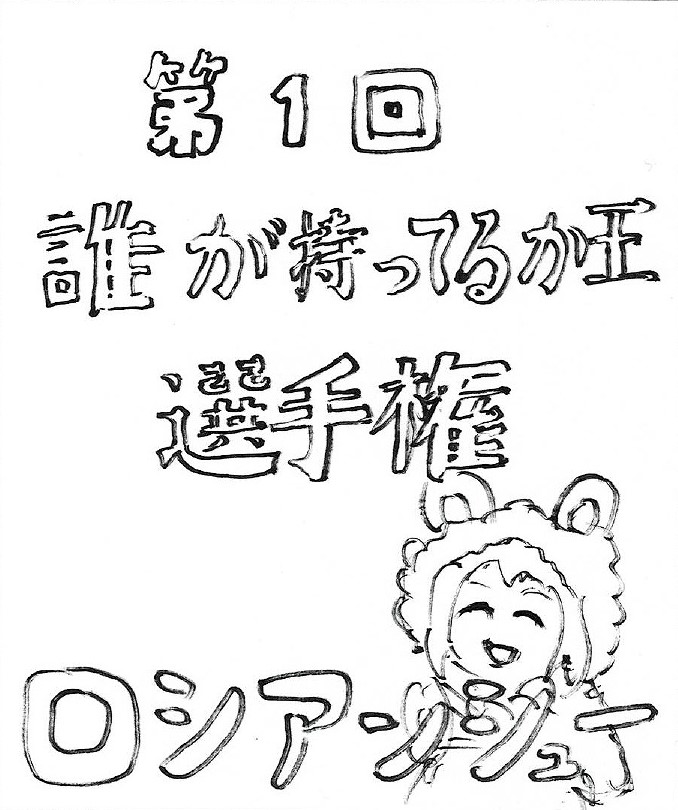 第1回
誰が持ってるか王
選手権
ロシアンシュー